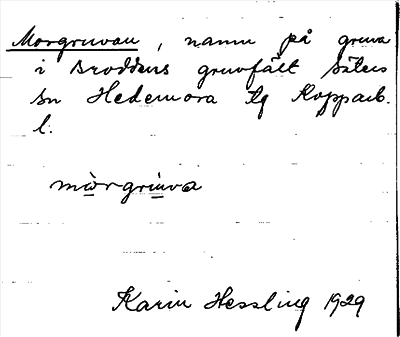 Morgruvan, namn på gruva
i Broddens gruvfält Säters
sn Hedemora tg Kopparb.
l.
mòrgrúva
Karin Hessling 1929